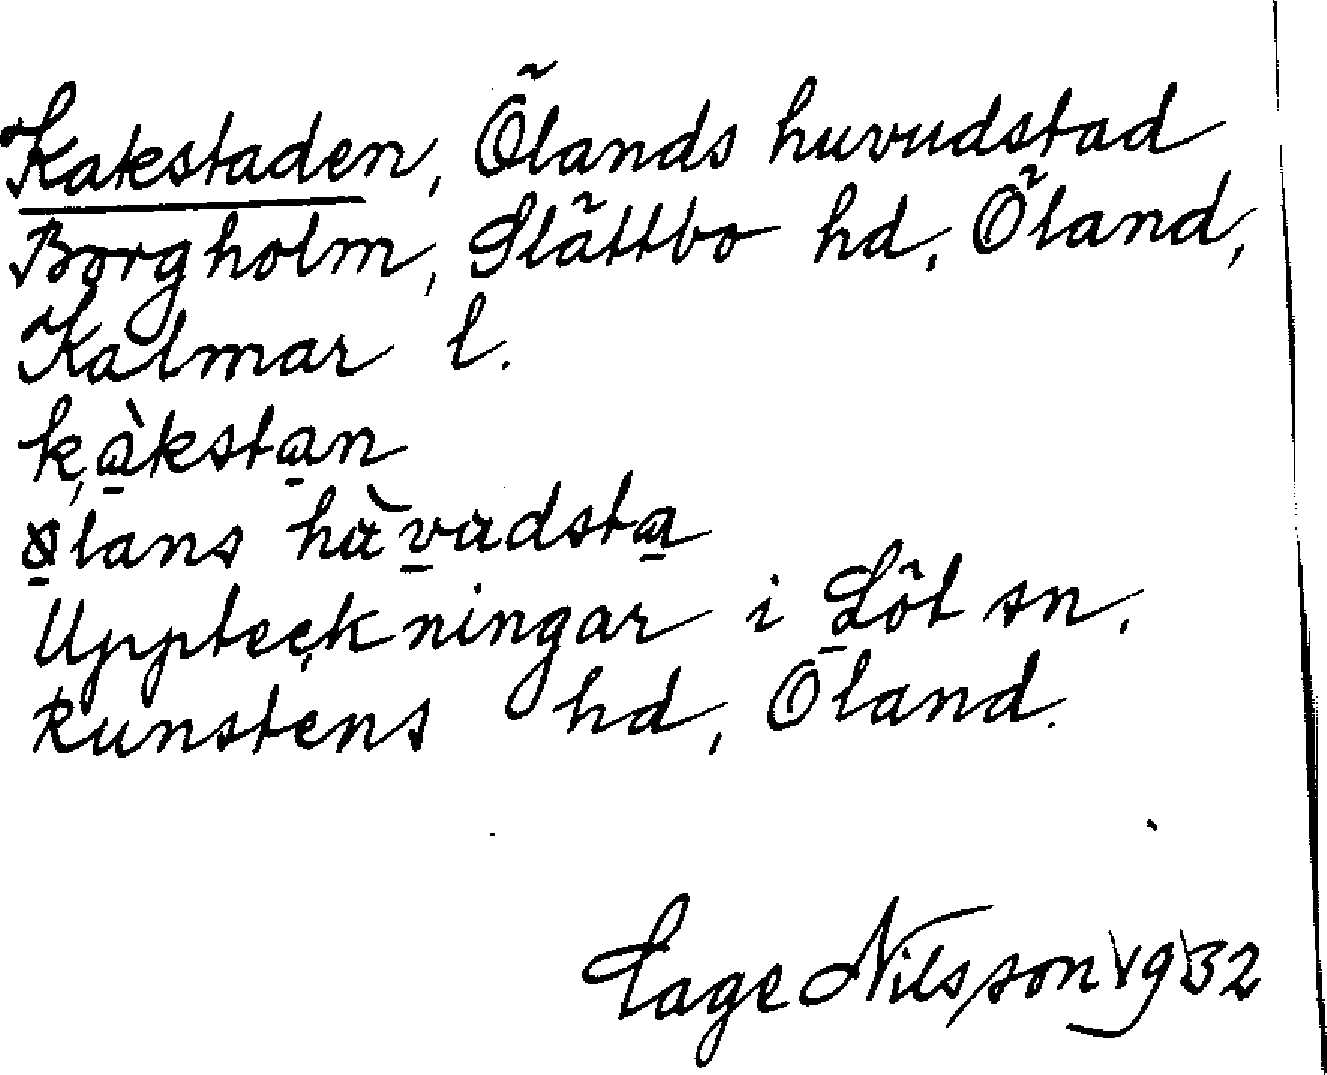 Kakstaden, Ölands huvudstad
Borgholm, Slättbo hd, Öland,
Kalmar l.
kàkstan
ølans hàvudsta
Uppteckningar i Löt sn,
Runstens hd, Öland.
Tage Nilsson 1932